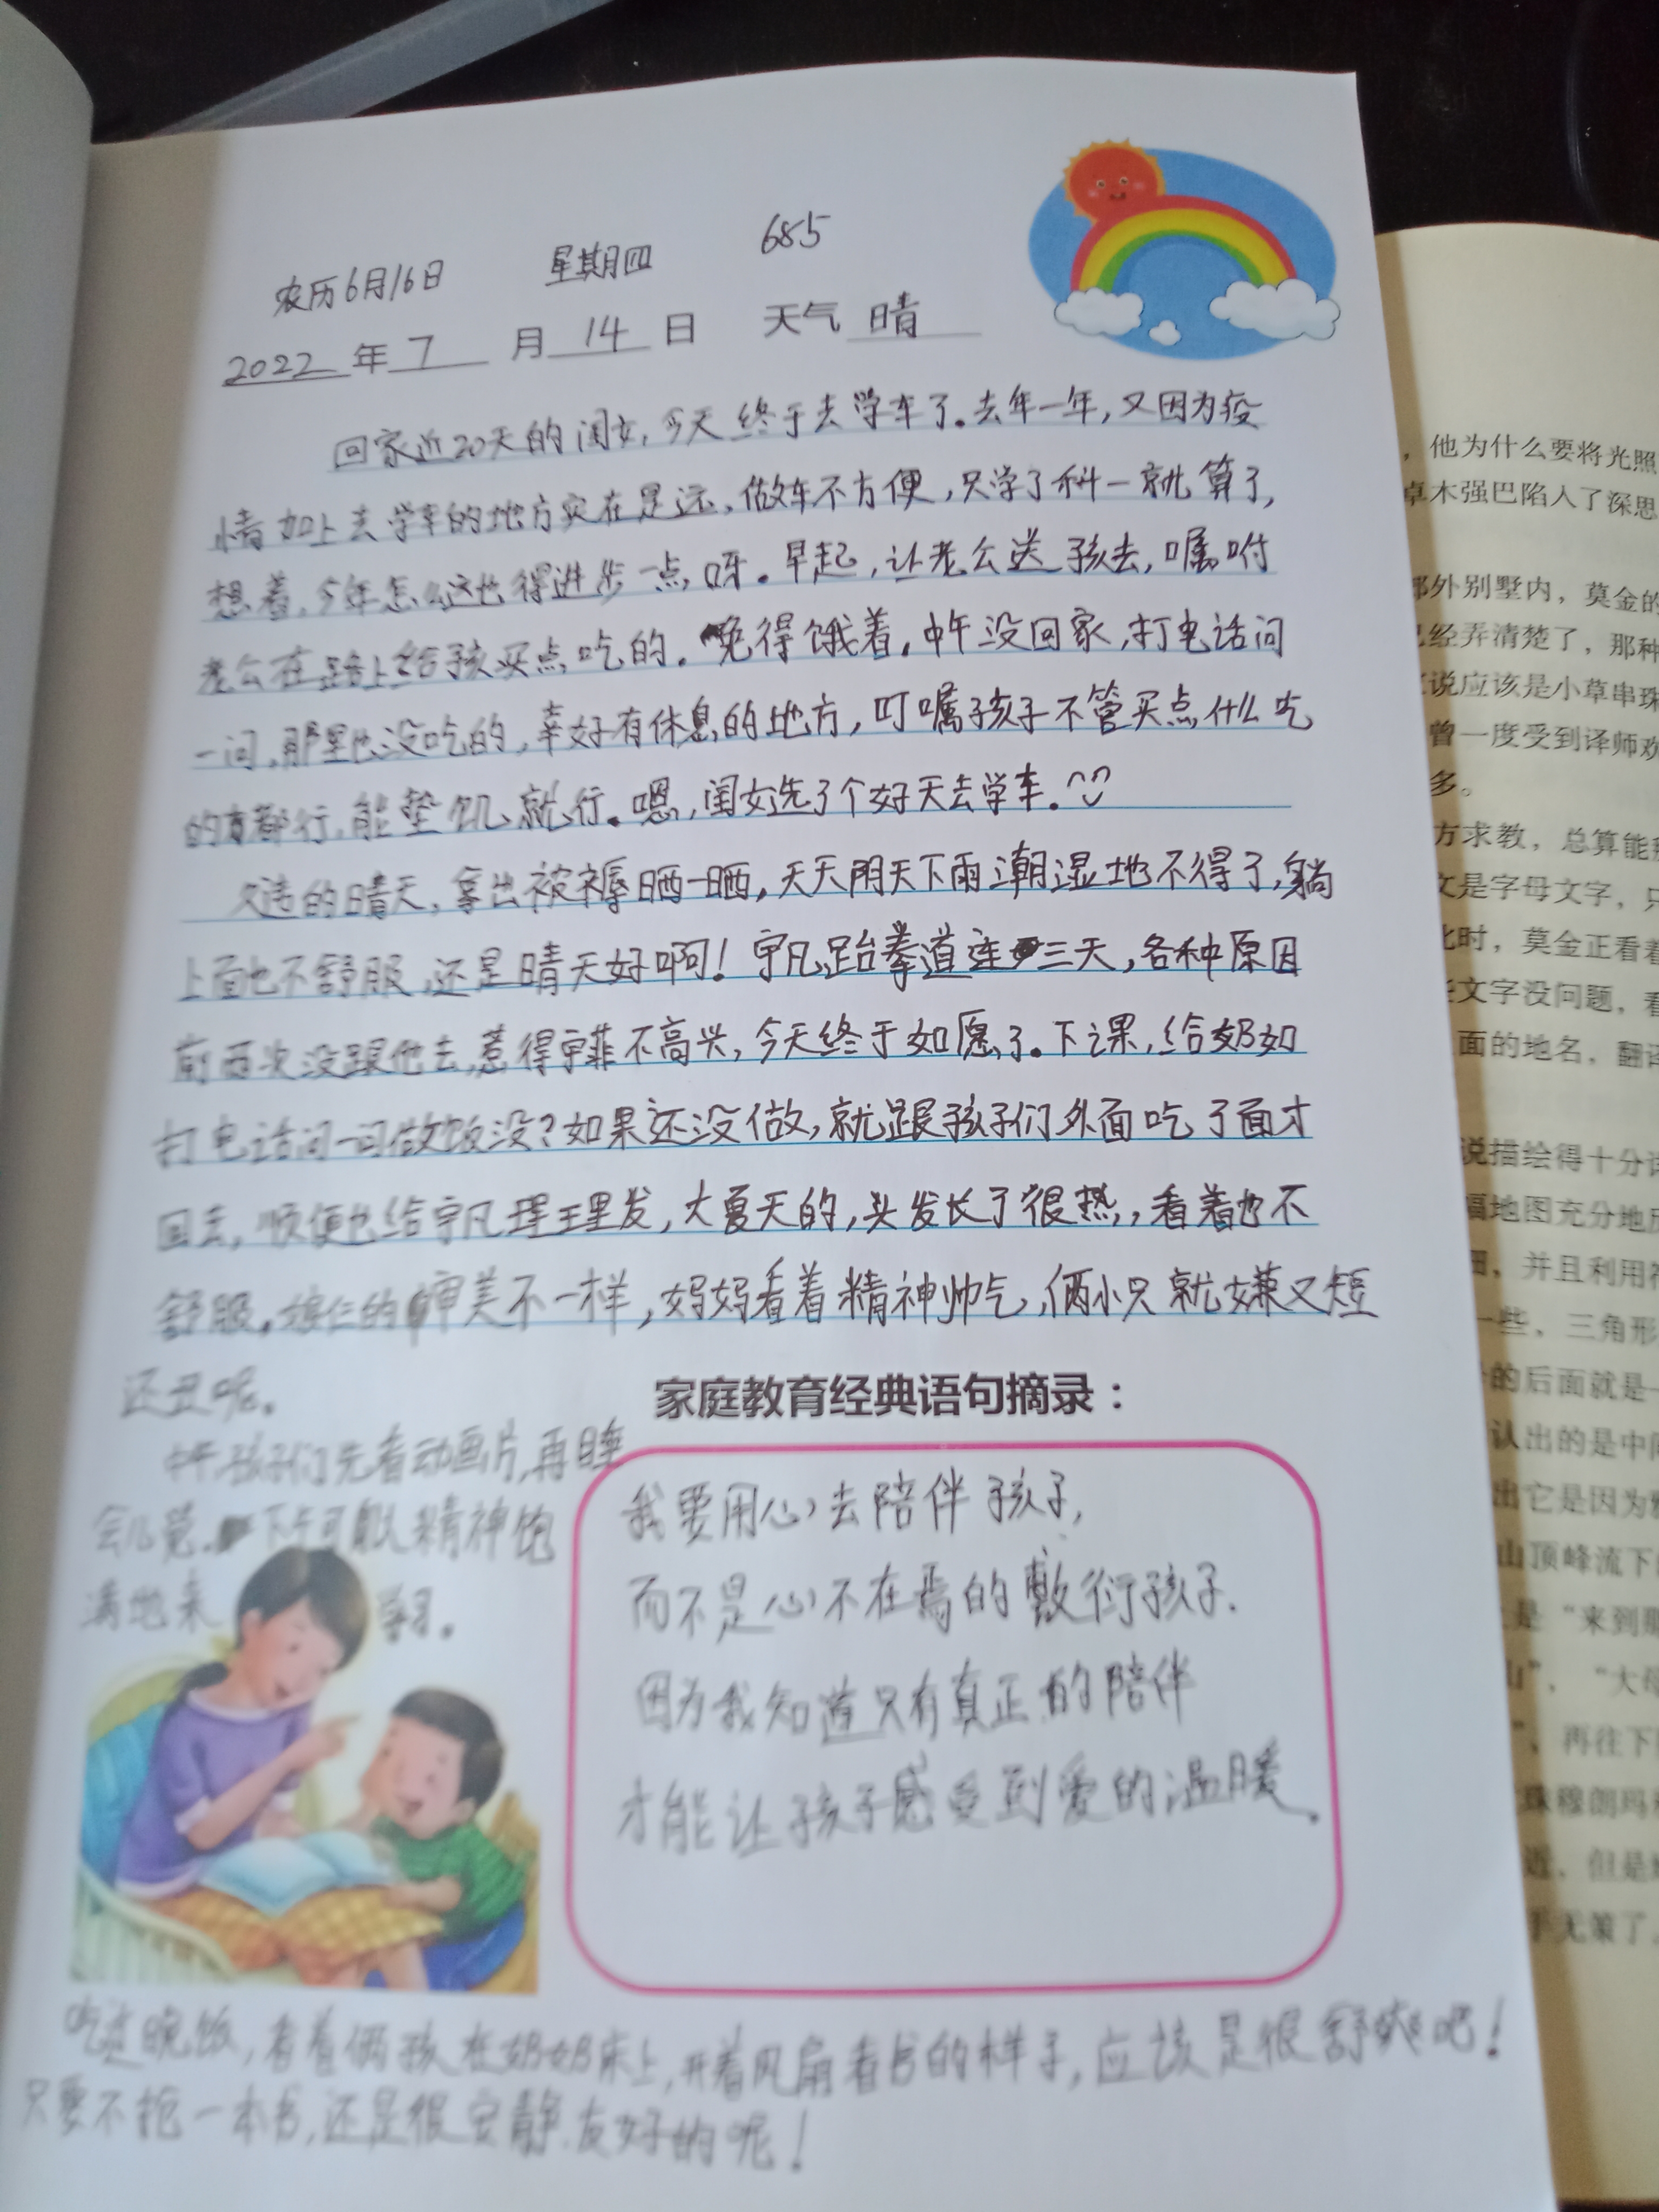 农历6月16日 星期四 685
2022年7月14日 天气 晴
回家近20天的闺女,今天终于去学车了.去年一年,又因为疫
情加上去学车的地方实在是远,做车不方便,只学了科一就算了,
想着,今年怎么这也得进步一点呀.早起,让老公送孩去,嘱咐
老公在路上给孩买点吃的.免得饿着.中午没回家,打电话问
一问,那里也没吃的,幸好有休息的地方,叮嘱孩子不管买点什么吃
的都行,能垫饥就行.嗯,闺女选了个好天去学车.
久违的晴天,拿出被褥晒一晒,天天阴天下雨潮湿地不得了,躺
上面也不舒服,还是晴天好啊!宇凡跆拳道连三天,各种原因
前两次没跟他去,惹得宇菲不高兴,今天终于如愿了.下课,给奶奶
打电话问一问做饭没?如果还没做,就跟孩子们外面吃了面才
回去,顺便也给宇凡理理发,大夏天的,头发长了很热,看着也不
舒服.娘仨的审美不一样,妈妈看着精神帅气,俩小只就嫌又短
还丑呢.
家庭教育经典语句摘录:
中午,孩子们先看动画片,再睡
会儿觉.下午可精神饱
满地来学习.
我要用心去陪伴孩子,
而不是心不在焉的敷衍孩子.
因为我知道只有真正的陪伴
才能让孩子感受到爱的温暖.
吃过晚饭,看着俩孩在奶奶床上,开着风扇看书的样子,应该是很舒爽吧!
只要不抢一本书,还是很安静友好的呢!
,他为什么要将光照
卓木强巴陷入了深思
郊外别墅内,莫金的
已经弄清楚了,那种
说应该是小草串珠
曾一度受到译师欢
多。
方求教,总算能
文是字母文字,只
此时,莫金正看着
文字没问题,看
面的地名,翻译
说描绘得十分详
幅地图充分地
,并且利用符
一些,三角形
的后面就是
认出的是中间
出它是因为
山顶峰流下
是“来到那
山”,“大母
”,再往下
珠穆朗玛
近,但是
手无策了。